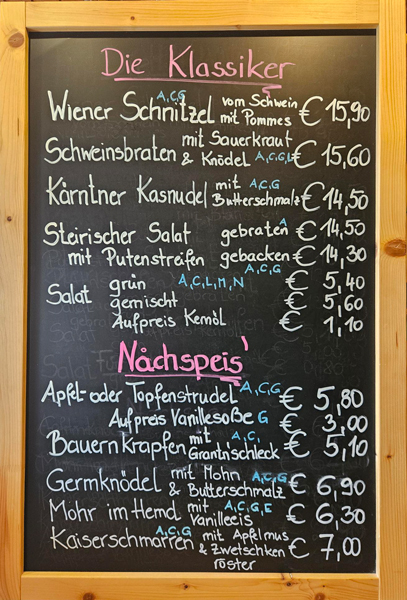 Die Klassiker
Wiener Schnitzel A,C,G vom Schwein mit Pommes € 15,90
Schweinsbraten mit Sauerkraut & Knödel A,C,G,L € 15,60
Kärntner Kasnudel mit A,C,G Butterschmalz € 14,50
Steirischer Salat gebraten A € 14,50
mit Putenstreifen gebacken A,C,G € 14,30
Salat grün A,C,L,M,N € 5,40
gemischt € 5,60
Aufpreis Kernöl € 1,10
Nåchspeis'
Apfel- oder Topfenstrudel A,C,G € 5,80
Aufpreis Vanillesoße G € 3,00
Bauernkrapfen mit A,C, Grantnschleck € 5,10
Germknödel mit Mohn A,C,G & Butterschmalz € 6,90
Mohr im Hemd mit A,C,G,E Vanilleeis € 6,30
Kaiserschmarren A,C,G mit Apfelmus & Zwetschken röster € 7,00